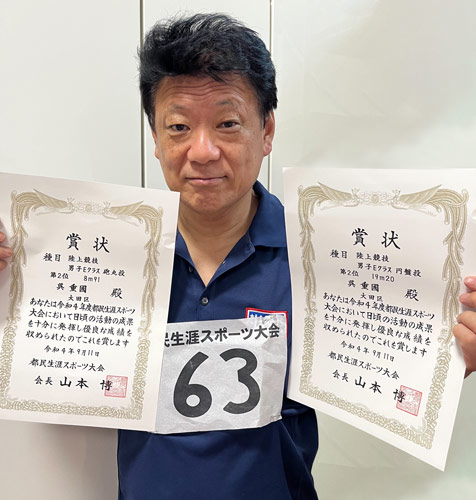 賞状
種目 陸上競技
男子Eクラス 砲丸投
第2位 8m91
呉 重國 殿
大田区
あなたは令和4年度都民生涯スポーツ
大会において日頃の活動の成果
を十分に発揮し優良な成績を
収められたのでこれを賞します
令和4年9月11日
都民生涯スポーツ大会
会長 山本 博
民生涯スポーツ大会
63
賞状
種目 陸上競技
男子Eクラス 円盤投
第2位 19m20
呉 重國 殿
大田区
あなたは令和4年度都民生涯スポーツ
大会において日頃の活動の成果
を十分に発揮し優良な成績を
収められたのでこれを賞します
令和4年9月11日
都民生涯スポーツ大会
会長 山本 博